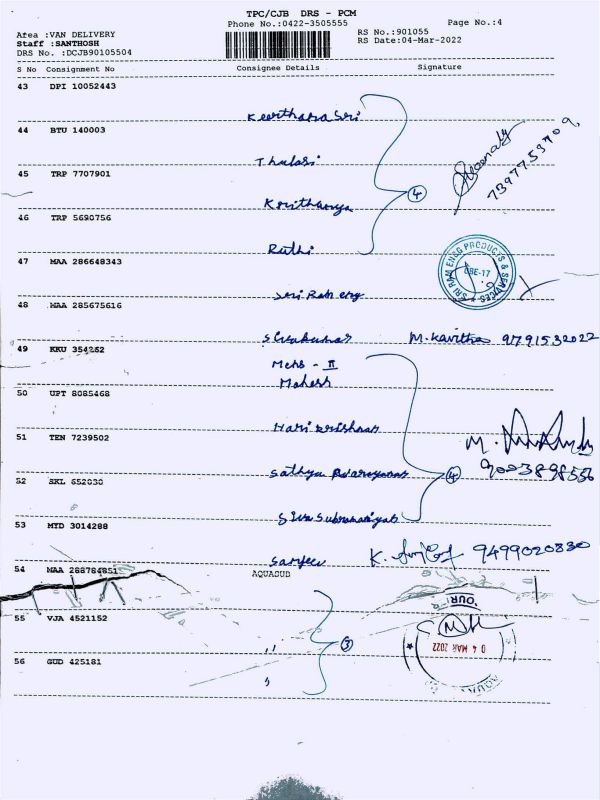 TPC/CJB DRS - PCM
Phone No.:0422-3505555
Page No.:4
Area :VAN DELIVERY
Staff :SANTHOSH
DRS No. :DCJB90105504
RS No.:901055
RS Date:04-Mar-2022
S No Consignment No Consignee Details Signature
43 DPI 10052443
Keerthana Sri
44 BTU 140003
Thulasi
45 TRP 7707901
4
7397753909
46 TRP 5690756
Rathi
47 MAA 286648343
SRI RAM ENGG PRODUCTS & SERVICES
CBE-17
Sri Ram eng
48 MAA 285675616
Sivakumar M. Kavitha 9791532022
49 KKU 354262
Mehs - II
Mahesh
50 UPT 8085468
Hari Krishnan
51 TEN 7239502
M.
Sathya Narayanan 4 9003898556
52 SKL 652030
Siva Subramaniyan
53 MYD 3014288
Sanjeev K. 9499020830
54 MAA 288784851 AQUASUB
55 VJA 4521152
,, 3
04 MAR 2022
56 GUD 425181
,,